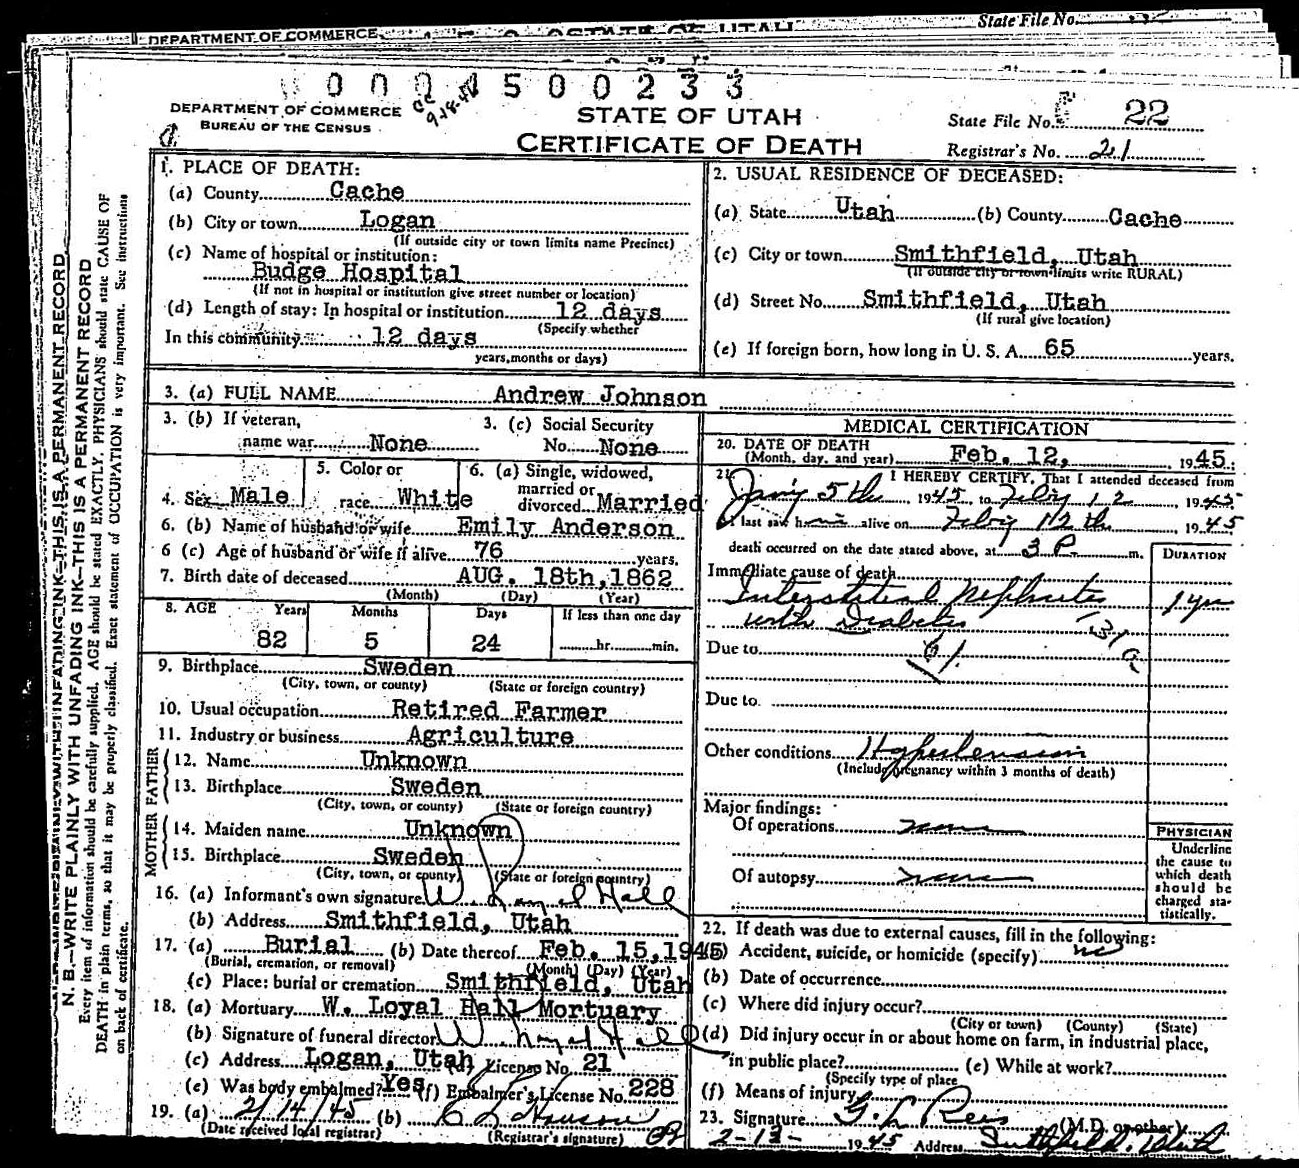 State File No.
DEPARTMENT OF COMMERCE
STATE OF UTAH
0 0 0 4 5 0 0 2 3 3
CC
9-18-45
DEPARTMENT OF COMMERCE
BUREAU OF THE CENSUS
STATE OF UTAH
CERTIFICATE OF DEATH
State File No. 22
Registrar's No. 21
N. B.—WRITE PLAINLY WITH UNFADING INK—THIS IS A PERMANENT RECORD
Every item of information should be carefully supplied. AGE should be stated EXACTLY. PHYSICIANS should state CAUSE OF
DEATH in plain terms, so that it may be properly classified. Exact statement of OCCUPATION is very important. See instructions
on back of certificate.
1. PLACE OF DEATH:
(a) County Cache
(b) City or town Logan
(If outside city or town limits name Precinct)
(c) Name of hospital or institution:
Budge Hospital
(If not in hospital or institution give street number or location)
(d) Length of stay: In hospital or institution 12 days
(Specify whether
In this community 12 days
years, months or days)
2. USUAL RESIDENCE OF DECEASED:
(a) State Utah (b) County Cache
(c) City or town Smithfield, Utah
(If outside city or town limits write RURAL)
(d) Street No. Smithfield, Utah
(If rural give location)
(e) If foreign born, how long in U. S. A. 65 years.
3. (a) FULL NAME Andrew Johnson
3. (b) If veteran,
name war None
3. (c) Social Security
No. None
4. Sex Male
5. Color or
race White
6. (a) Single, widowed,
married or
divorced Married
6. (b) Name of husband or wife Emily Anderson
6 (c) Age of husband or wife if alive 76 years.
7. Birth date of deceased AUG. 18th, 1862
(Month) (Day) (Year)
8. AGE Years Months Days If less than one day
82 5 24 hr. min.
9. Birthplace Sweden
(City, town, or county) (State or foreign country)
10. Usual occupation Retired Farmer
11. Industry or business Agriculture
FATHER
12. Name Unknown
13. Birthplace Sweden
(City, town, or county) (State or foreign country)
MOTHER
14. Maiden name Unknown
15. Birthplace Sweden
(City, town, or county) (State or foreign country)
16. (a) Informant's own signature W. Loyal Hall
(b) Address Smithfield, Utah
17. (a) Burial (b) Date thereof Feb. 15, 1945
(Burial, cremation, or removal) (Month) (Day) (Year)
(c) Place: burial or cremation Smithfield, Utah
18. (a) Mortuary W. Loyal Hall Mortuary
(b) Signature of funeral director W. Loyal Hall
(c) Address Logan, Utah (d) License No. 21
(e) Was body embalmed? Yes (f) Embalmer's License No. 228
19. (a) 2/14/45 (b)
(Date received local registrar) (Registrar's signature)
MEDICAL CERTIFICATION
20. DATE OF DEATH
(Month, day, and year) Feb. 12, 1945.
21. I HEREBY CERTIFY, That I attended deceased from
Jany 5th 1945 to Feby 12 1945
I last saw him alive on Feby 12th 1945
death occurred on the date stated above, at 3 P. m.
DURATION
Immediate cause of death
Interstitial Nephritis 1 yr
with Diabetes
131a
Due to 61.
Due to
Other conditions Hypertension
(Include pregnancy within 3 months of death)
Major findings:
Of operations none
Of autopsy none
PHYSICIAN
Underline
the cause to
which death
should be
charged sta-
tistically.
22. If death was due to external causes, fill in the following:
(a) Accident, suicide, or homicide (specify) no
(b) Date of occurrence
(c) Where did injury occur?
(City or town) (County) (State)
(d) Did injury occur in or about home on farm, in industrial place,
in public place? (e) While at work?
(Specify type of place
(f) Means of injury
23. Signature G. L. Rees (M.D. or other)
2-12- 1945 Address Smithfield, Utah